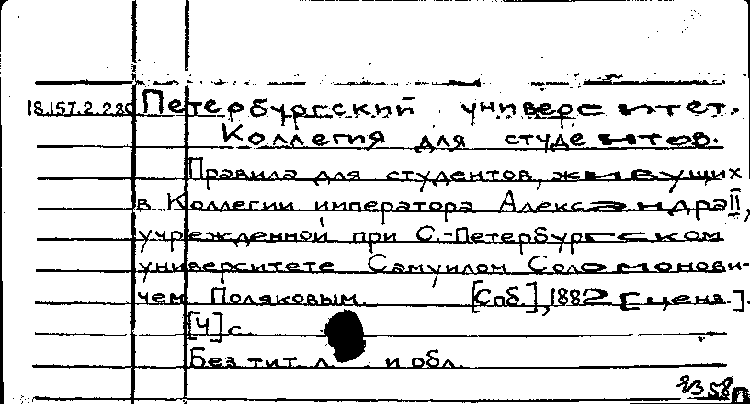 18.157.2.220 Петербургский университет.
Коллегия для студентов.
Правила для студентов, живущих
в Коллегии императора Александра II,
учрежденной при С.-Петербургском
университете Самуилом Соломонови-
чем Поляковым. [Спб.], 1882 [ценз.].
[4] с.
Без тит. л. и обл.